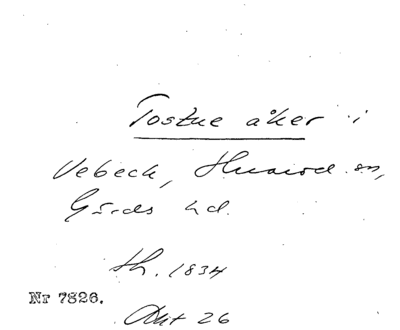 Tostue åker i
Vebeck, Hwarod sn,
Gärds hd.
Sk. 1834
Nr 7826.
Akt 26